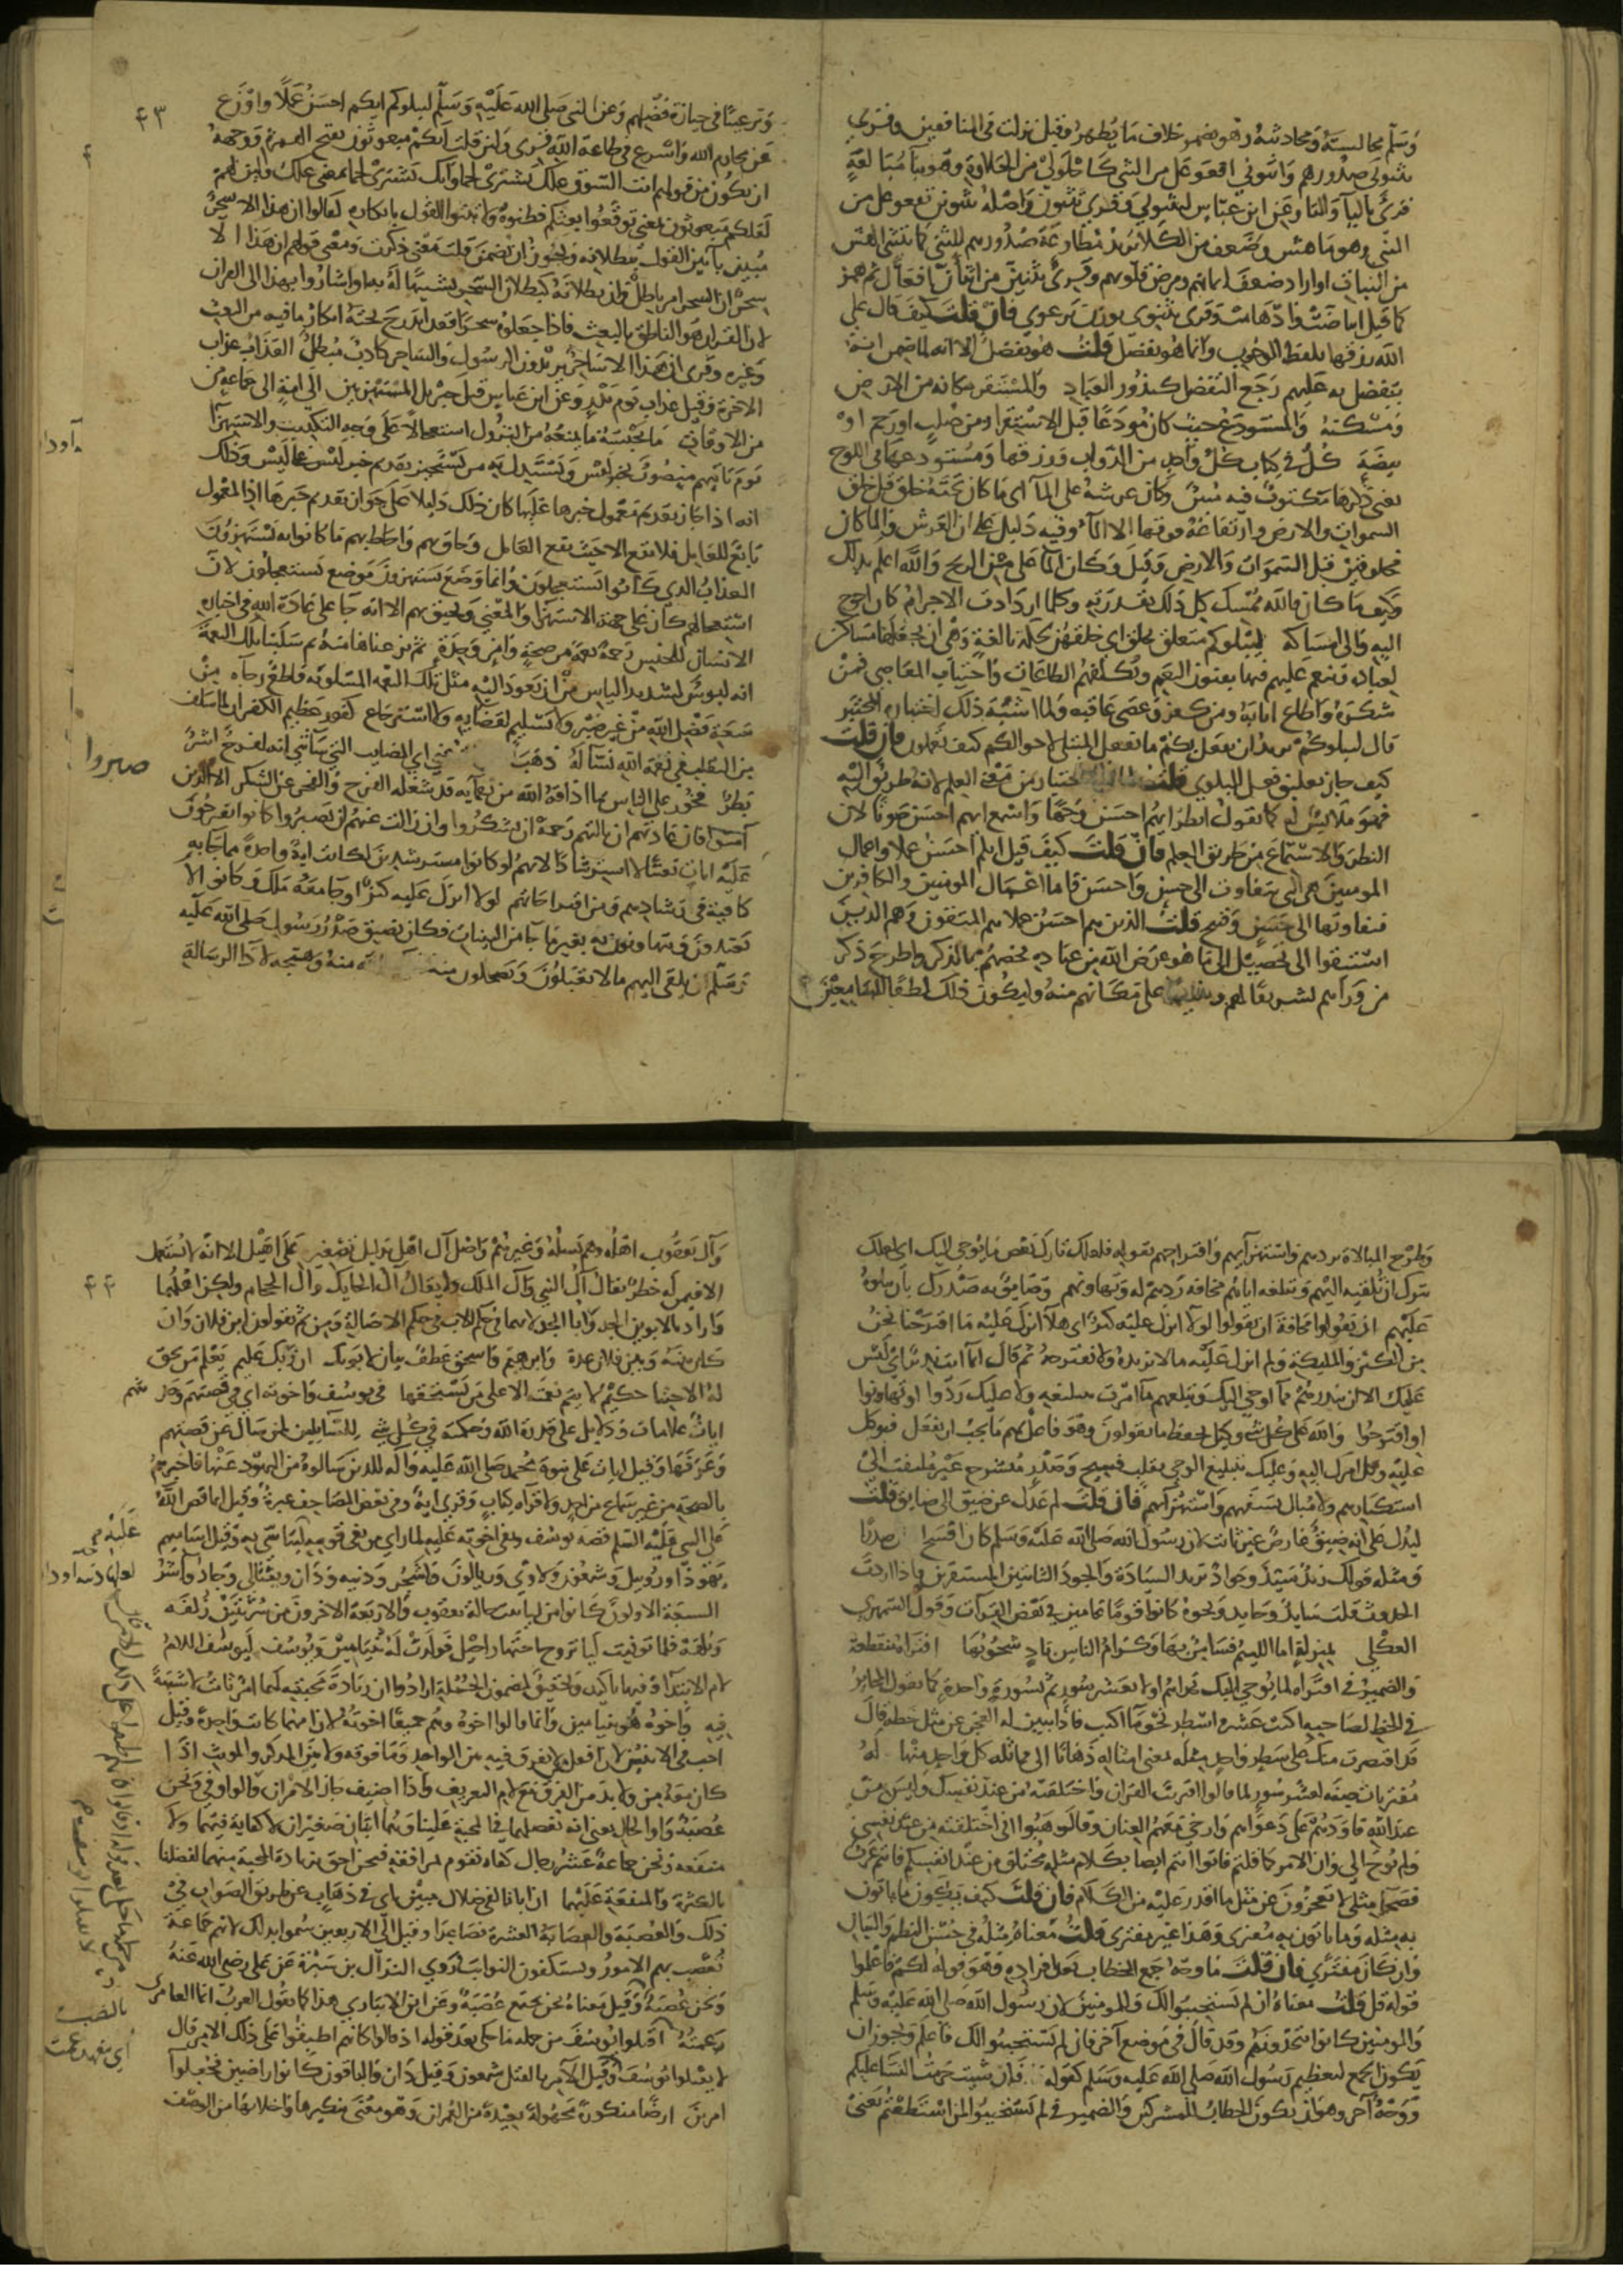 وسلم مجالسة ومحادثة وهو يضمر خلاف ما يظهر وقيل نزلت في المنافقين وقرئ
تثنوني صدورهم واثنوني افعوعل من الثني كاحلولى من الحلاوة وهو بناء مبالغة
قرئ بالياء والتاء وعن ابن عباس لتثنوني وقرئ تثنون واصله تثنونن تفعوعل من
الثن وهو ما هش وضعف من الكلا يريد مطاوعة صدورهم للثني كما ينثني الهش
من النبات او اراد ضعف ايمانهم ومرض قلوبهم وقرئ تثنئن من اثنأن افعال ثم همز
كما قيل ابياضت وادهامت وقرئ تثنوي بوزن ترعوي فان قلت كيف قال على
الله رزقها بلفظ الوجوب وانما هو تفضل قلت هو تفضل الا انه لما ضمن ان
يتفضل به عليهم رجع التفضل كنذور العباد والمستقر مكانه من الارض
ومسكنه والمستودع حيث كان مودعا قبل الاستقرار من صلب او رحم او
بيضة كل في كتاب كل واحد من الدواب ورزقها ومستودعها في اللوح
يعني ذكرها مكتوب فيه مبين وكان عرشه على الماء اي ما كان تحته خلق قبل خلق
السموات والارض وارتفاعه فوقها الا الماء وفيه دليل على ان العرش والماء كان
مخلوقين قبل السموات والارض وقيل وكان الماء على متن الريح والله اعلم بذلك
وكيف ما كان فالله ممسك كل ذلك بقدرته وكلما ازدادت الاجرام كان احوج
اليه والى امساكه ليبلوكم متعلق بخلق اي خلقهن لحكمة بالغة وهي ان يجعلها مساكن
لعباده وينعم عليهم فيها بفنون النعم ويكلفهم الطاعات واجتناب المعاصي فمن
شكره واطاع اثابه ومن كفر وعصى عاقبه ولما اشبه ذلك اختبار المختبر
قال ليبلوكم يريد ان يفعل بكم ما تفعل المبتلي لاحوالكم كيف تعملون فان قلت
كيف جاز تعليق فعل البلوى قلت لما في الاختبار من معنى العلم لانه طريق اليه
فهو ملابس له كما تقول انظر ايهم احسن وجها واسمع ايهم احسن صوتا لان
النظر والاستماع من طريق العلم فان قلت كيف قيل ايكم احسن عملا واعمال
المومنين هي التي تتفاوت الى حسن واحسن فاما اعمال المومنين والكافرين
فتفاوتها الى حسن وقبيح قلت الذين هم احسن عملا هم المتقون وهم الذين
استبقوا الى تحصيل ما هو غرض الله من عباده فخصهم بالذكر واطرح ذكر
من وراهم تشريفا لهم وتنبيها على مكانهم منه وليكون ذلك لطفا للسامعين
وترغيبا في حيازة فضلهم وعن النبي صلى الله عليه وسلم ليبلوكم ايكم احسن عملا واورع
٤٣
عن محارم الله واسرع في طاعة الله قرئ ولئن قلت انكم مبعوثون بفتح الهمزة ووجهه
ان يكون من قولهم ائت السوق علك تشتري لحما وانك تشتري لحما بمعنى علك اي ولئن قلت لهم
لعلكم مبعوثون بمعنى توقعوا بعثكم وظنوه ولا تبتوا القول بانكاره لقالوا ان هذا الا سحر
مبين باتين القول ببطلانه ويجوز ان تضمن قلت معنى ذكرت ومعنى قولهم ان هذا الا
سحر ان السحر امر باطل وان بطلانه كبطلان السحر تشبيها له به او اشاروا بهذا الى القران
لان القران هو الناطق بالبعث فاذا جعلوه سحرا فقد اندرج تحته انكار ما فيه من البعث
وغيره وقرئ ان هذا الا ساحر يريدون الرسول والساحر كاذب مبطل العذاب عذاب
الاخرة وقيل عذاب يوم بدر وعن ابن عباس قتل جبريل المستهزئين الى امة الى جماعة من
من الاوقات ما يحبسه ما يمنعه من النزول استعجالا على وجه التكذيب والاستهزا
يوم ياتيهم منصوب بخبر ليس ويستدل به من يستجيز تقديم خبر ليس على ليس وذلك
انه اذا جاز تقديم معمول خبرها عليها كان ذلك دليلا على جواز تقديم خبرها اذا المعمول
تابع للعامل فلا يقع الا حيث يقع العامل وحاق بهم واحاط بهم ما كانوا به يستهزؤن
العذاب الذي كانوا يستعجلون وانما وضع يستهزؤن موضع يستعجلون لان
استعجالهم كان على جهة الاستهزا والمعنى ويحيق بهم الا انه جاء على عادة الله في اخباره
الانسان للجنس رحمة نعمة من صحة وامن وجدة ثم نزعناها منه ثم سلبنا تلك النعمة
انه ليؤس شديد الياس من ان تعود اليه مثل تلك النعمة المسلوبة قاطع رجاه من
سعة فضل الله من غير صبر ولا تسليم لقضايه ولا استرجاع كفور عظيم الكفران لما سلف
من التقلب في نعمة الله نساله ذهب عني اي المصايب التي ساتني انه لفرح اشر
صبروا
بطر فخور على الناس بما اذاقه الله من نعمايه قد شغله الفرح والفخر عن الشكر الا الذين
آمنوا فان عادتهم ان نالتهم رحمة ان يشكروا وان زالت عنهم ان يصبروا كانوا يقترحون
عليه ايات تعنتا لا استرشادا لانهم لو كانوا مسترشدين لكانت اية واحدة مما جاء به
كافية في رشادهم ومن اقتراحاتهم لولا انزل عليه كنز او جاء معه ملك وكانوا لا
يعتدون ويتهاونون به بغيره مما جاء من البينات فكان يضيق صدر رسول صلى الله عليه
وسلم ان يلقي اليهم ما لا يقبلون ويضحكون منه منه وهيجه لاداء الرسالة
وطرح المبالاة بردهم واستهزائهم واقتراحهم بقوله فلعلك تارك بعض ما يوحى اليك اي لعلك
تترك ان تلقيه اليهم وتبلغه اياهم مخافة ردهم له وتهاونهم وضايق به صدرك بان تتلوه
عليهم ان يقولوا مخافة ان يقولوا لولا انزل عليه كنز اي هلا انزل عليه ما اقترحنا نحن
من الكنز والمليكة ولم انزل عليه ما لا نريده ولا نقترحه ثم قال انما انت نذير اي ليس
عليك الا ان تنذرهم بما اوحي اليك وتبلغهم ما امرت بتبليغه ولا عليك ردوا او تهاونوا
او اقترحوا والله على كل شي وكيل يحفظ ما يقولون وهو فاعل بهم ما يجب ان يفعل فتوكل
عليه وكل امرك اليه وعليك بتبليغ الوحي بقلب فسيح وصدر منشرح غير ملتفت الى
استكبارهم ولا مبال بسفههم واستهزائهم فان قلت لم عدل عن ضيق الى ضايق قلت
ليدل على انه ضيق عارض غير ثابت لان رسول الله صلى الله عليه وسلم كان افسح صدرا
ومثله قولك زيد سيد وجواد تريد السيادة والجود الثابتين المستقرين فاذا اردت
الحدوث قلت سايد وجايد ونحوه كانوا قوما عامين في بعض القرآت وقول السمهري
العكلي بمنزلة اما اللئيم فسامن بها وكرام الناس باد شحوبها افتراه منقطعة
والضمير في افتراه لما يوحى اليك تحداهم اولا بعشر سور ثم بسورة واحدة كما يقول المخاير
في الخط لصاحبه اكتب عشرة اسطر نحو ما اكتب فاذا تبين له العجز عن مثل خطه قال
قد اقتصرت منك على سطر واحد مثله بمعنى امثاله ذهابا الى مماثلة كل واحد منها له
مفتريات صفة لعشر سور لما قالوا افتريت القران واختلقته من عند نفسك وليس من
عند الله قاودهم على دعواهم وارخى معهم العنان وقال هبوا اني اختلقته من عند نفسي
ولم يوح الي وان الامر كما قلتم فاتوا انتم ايضا بكلام مثله مختلق من عند انفسكم فانتم عرب
فصحاء مثلي لا تعجزون عن مثل ما اقدر عليه من الكلام فان قلت كيف يكون ما ياتون
به مثله وما ياتون به مفترى وهذا غير مفترى قلت معناه مثله في حسن النظم والبيان
وان كان مفترى فان قلت ما وجه جمع الخطاب بعد افراده وهو قوله لكم فاعلموا بعد
قوله قل قلت معناه ان لم يستجيبوا لك وللمومنين لان رسول الله صلى الله عليه وسلم
والمومنين كانوا يتحدونهم وقد قال في موضع آخر فان لم يستجيبوا لك فاعلم ويجوز ان
يكون الجمع لتعظيم رسول الله صلى الله عليه وسلم كقوله فان شئت حرمت النسا عليكم
ووجه آخر وهو ان يكون الخطاب للمشركين والضمير في لم يستجيبوا لمن استطعتم يعني
وآل يعقوب اهله وهم نسله وغيرهم واصل آل اهل بدليل تصغيره على اهيل الا انه لا يستعمل
٤٤
الا فيمن له خطر يقال آل النبي وآل الملك ولا يقال آل الحايك وآل الحجام ولكن اهلهما
واراد بالابوين الجد وابا الجد لانهما في حكم الاب في حكم الاصالة ومن ثم يقولون ابن فلان وان
كان بينه وبين فلان عدة وابراهيم واسحق عطف بيان لابويك ان ربك عليم يعلم من يحق
له الاجتبا حكيم لا يتم نعمته الا على من يستحقها في يوسف واخوته اي في قصتهم وحديثهم
ايات علامات ودلايل على قدرة الله وحكمته في كل شي للسائلين لمن سال عن قصتهم
وعرفها وقيل ايات على نبوة محمد صلى الله عليه وآله للذين سالوه من اليهود عنها فاخبرهم
بالصحة من غير سماع من احد ولا قرآة كتاب وقرئ اية وفي بعض المصاحف عبرة وقيل انما قص الله
على النبي عليه السلم قصة يوسف وبغي اخوته عليه لما راى من بغي قومه ليتاسى به وقيل اساميهم
يهوذا وروبيل وشمعون ولاوي وربالون ويشجر ودينه ودان ونفتالي وجاد وآشر
السبعة الاولون كانوا من ليا بنت خالة يعقوب والاربعة الاخرون من سريتين زلفه
وبلهه فلما توفيت ليا تزوج اختها راحيل فولدت له بنيامين ويوسف ليوسف اللام
لام الابتداء وفيها تاكيد وتحقيق لمضمون الجملة ارادوا ان زيادة محبته لهما امر ثابت لا شبهة
فيه واخوه هو بنيامين وانما قالوا اخوه وهم جميعا اخوته لان امهما كانت واحدة وقيل
احب في الاثنين لان افعل لا يفرق فيه بين الواحد وما فوقه ولا بين المذكر والمونث اذا
كان معه من ولا بد من الفرق مع لام التعريف واذا اضيف جاز الامران والواو في ونحن
عصبة واو الحال يعني انه تفضلهما في المحبة علينا وهما ابنان صغيران لا كفاية فيهما ولا
منفعة ونحن جماعة عشرة رجال كفاه نقوم بمرافقه فنحن احق بزيادة المحبة منهما لفضلنا
بالكثرة والمنفعة عليهما ان ابانا لفي ضلال مبين اي في ذهاب عن طريق الصواب في
ذلك والعصبة والعصابة العشرة فصاعدا وقيل الى الاربعين سموا بذلك لانهم جماعة
تعصب بهم الامور ويستكفون النوايب وروي النزال بن سبرة عن علي رضي الله عنه
ونحن عصبة وقيل معناه نحن نجتمع عصبة وعن ابن الانباري هذا كما تقول العرب انما العامري
بالنصب
عمته اقتلوا يوسف من جملة ما حكي بعد قوله اذ قالوا كانهم اطبقوا على ذلك الا من قال
لا تقتلوا يوسف وقيل الآمر بالقتل شمعون وقيل دان والباقون كانوا راضين فجعلوا
آمرين ارضا منكورة مجهولة بعيدة من العمران وهو معنى تنكيرها واخلائها من الوصف